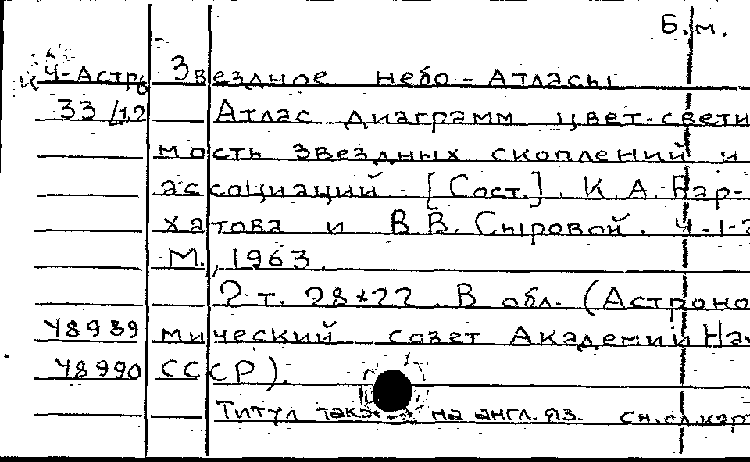 Б.м.
Ч-Астр. Звездное небо - Атласы
33/12 Атлас диаграмм цвет-свети
мость звездных скоплений и
ассоциаций. [Сост.]. К.А. Бар-
хатова и В.В. Сыровой. Ч.1-2
М., 1963.
2 т. 28*22. В обл. (Астроно
48989 мический совет Академии На
48990 СССР).
Титул также на англ. яз. см.сл.кар